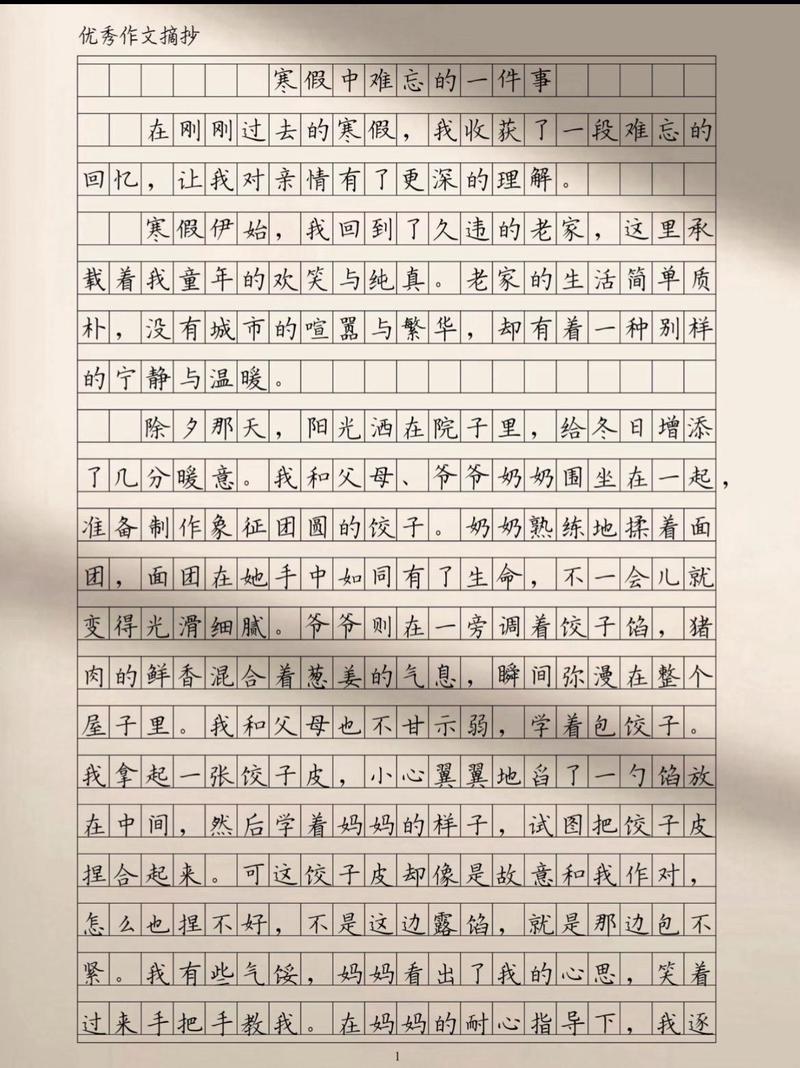 优秀作文摘抄
寒假中难忘的一件事
在刚刚过去的寒假，我收获了一段难忘的
回忆，让我对亲情有了更深的理解。
寒假伊始，我回到了久违的老家，这里承
载着我童年的欢笑与纯真。老家的生活简单质
朴，没有城市的喧嚣与繁华，却有着一种别样
的宁静与温暖。
除夕那天，阳光洒在院子里，给冬日增添
了几分暖意。我和父母、爷爷奶奶围坐在一起，
准备制作象征团圆的饺子。奶奶熟练地揉着面
团，面团在她手中如同有了生命，不一会儿就
变得光滑细腻。爷爷则在一旁调着饺子馅，猪
肉的鲜香混合着葱姜的气息，瞬间弥漫在整个
屋子里。我和父母也不甘示弱，学着包饺子。
我拿起一张饺子皮，小心翼翼地舀了一勺馅放
在中间，然后学着妈妈的样子，试图把饺子皮
捏合起来。可这饺子皮却像是故意和我作对，
怎么也捏不好，不是这边露馅，就是那边包不
紧。我有些气馁，妈妈看出了我的心思，笑着
过来手把手教我。在妈妈的耐心指导下，我逐
1